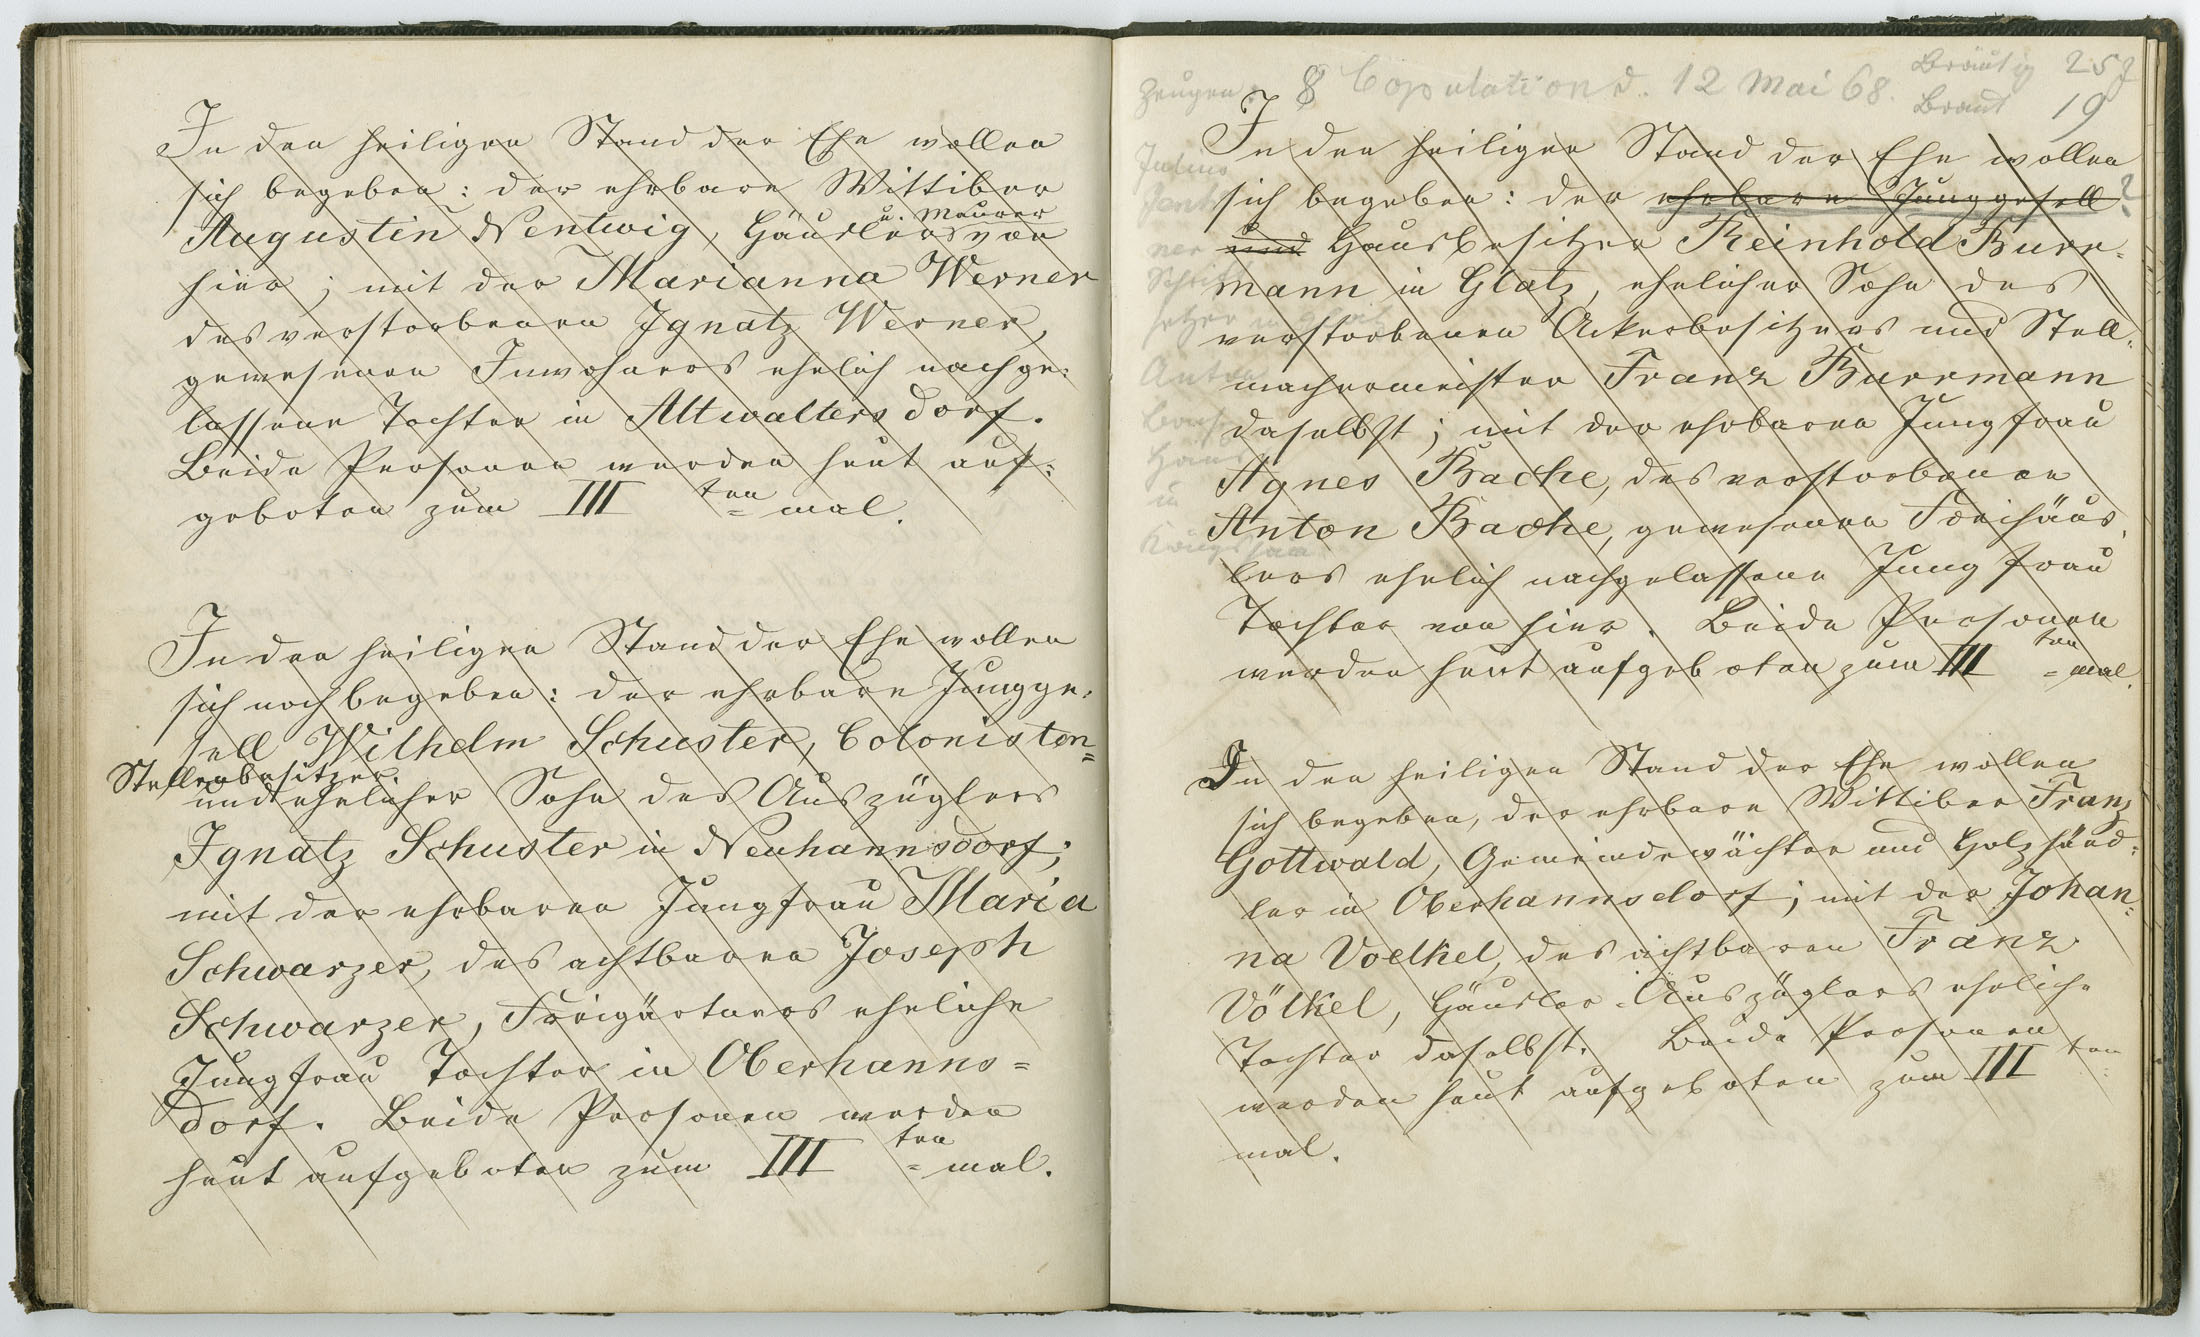 In den heiligen Stand der Ehe wollen
sich begeben: der ehrbare Wittiber
u. Maurer
Augustin Nentwig, Häuslers von
hier; mit der Marianna Werner
des verstorbenen Ignatz Werner,
gewesenen Inwohners ehelich nachge:
lassene Tochter in Altwaltersdorf.
Beide Personen werden heut auf:
geboten zum III ten = mal.
In den heiligen Stand der Ehe wollen
sich noch begeben: der ehrbare Jungge:
sell Wilhelm Schuster, Colonisten=
Stellenbesitzer
und ehelicher Sohn des Auszüglers
Ignatz Schuster in Neuhannsdorf;
mit der ehrbaren Jungfrau Maria
Schwarzer, des achtbaren Joseph
Schwarzer, Freigärtners eheliche
Jungfrau Tochter in Oberhanns=
dorf. Beide Personen werden
heut aufgeboten zum III ten = mal.
Zeugen: 8 Copulation d. 12 Mai 68. Bräutig 25 J
Braut 19
In den heiligen Stand der Ehe wollen
Julius
sich begeben: der ehrbare Junggesell ?
Jent
ner
und Hausbesitzer Reinhold Burr=
Schrift
mann in Glatz, ehelicher Sohn des
setzer in Glatz
verstorbenen Ackerbesitzers und Stell=
machermeister Franz Burrmann
Anton
daselbst; mit der ehrbaren Jungfrau
Häus
Agnes Bache, des verstorbenen
in
Anton Bache, gewesenen Freihäus=
Königshain
lers ehelich nachgelassene Jungfrau
Tochter von hier. Beide Personen
werden heut aufgeboten zum III ten = mal.
In den heiligen Stand der Ehe wollen
sich begeben, der ehrbare Wittiber Franz
Gottwald, Gemeindewächter und Holzhänd=
ler in Oberhannsdorf; mit der Johan=
na Voelkel, des achtbaren Franz
Völkel, Häusler Auszüglers eheliche
Tochter daselbst. Beide Personen
werden heut aufgeboten zum III ten =
mal.